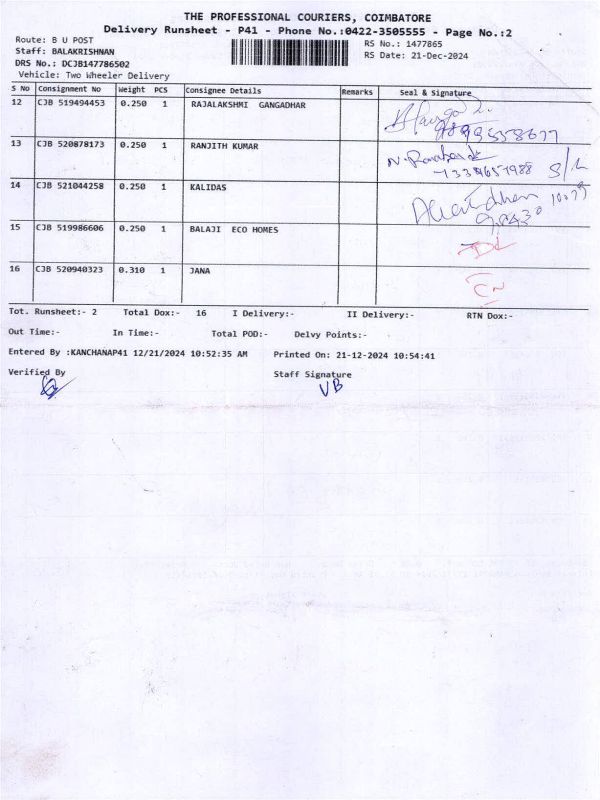 THE PROFESSIONAL COURIERS, COIMBATORE
Delivery Runsheet - P41 - Phone No.:0422-3505555 - Page No.:2
Route: B U POST
RS No.: 1477865
Staff: BALAKRISHNAN
RS Date: 21-Dec-2024
DRS No.: DCJB147786502
Vehicle: Two Wheeler Delivery
S No Consignment No Weight PCS Consignee Details Remarks Seal & Signature
12 CJB 519494453 0.250 1 RAJALAKSHMI GANGADHAR
13 CJB 520878173 0.250 1 RANJITH KUMAR
14 CJB 521044258 0.250 1 KALIDAS
15 CJB 519986606 0.250 1 BALAJI ECO HOMES
16 CJB 520940323 0.310 1 JANA
CN
Tot. Runsheet:- 2 Total Dox:- 16 I Delivery:- II Delivery:- RTN Dox:-
Out Time:- In Time:- Total POD:- Delvy Points:-
Entered By :KANCHANAP41 12/21/2024 10:52:35 AM Printed On: 21-12-2024 10:54:41
Verified By Staff Signature
VB